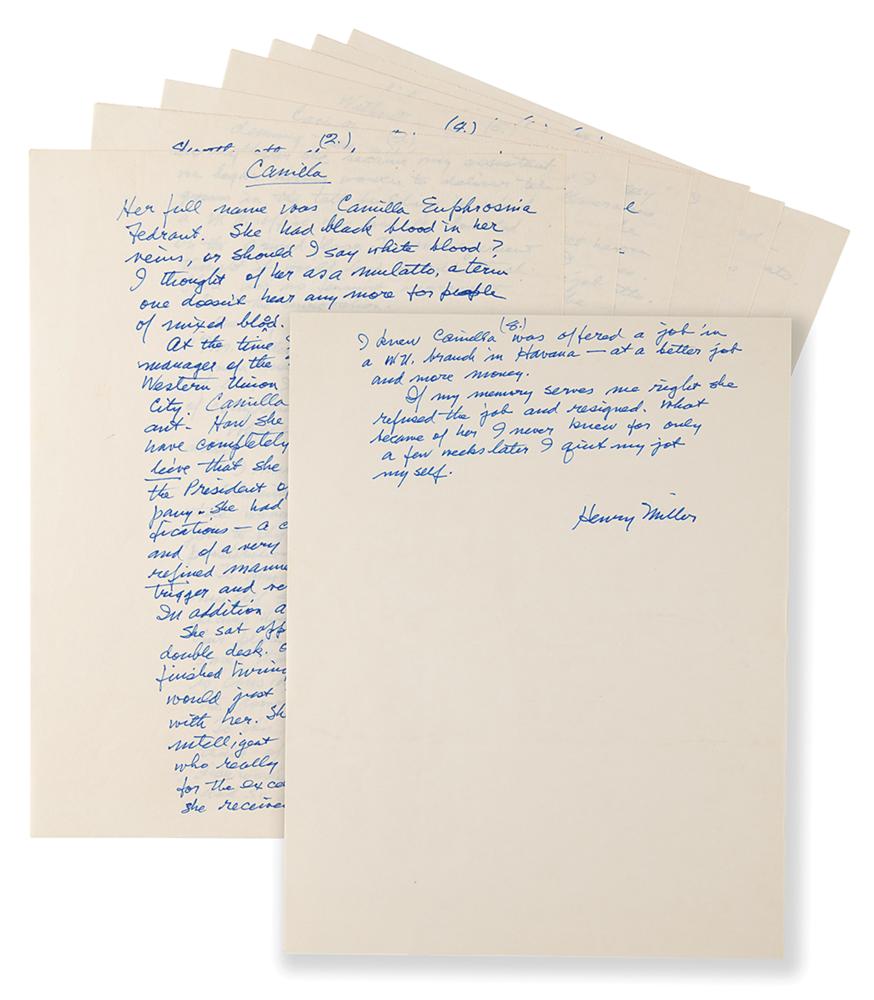 Camilla
Her full name was Camilla Euphrosnia
Fedrant. She had black blood in her
veins, or should I say white blood?
I thought of her as a mulatto, a term
one doesn't hear any more for people
of mixed blood.
At the time
manager of the
Western Union
City. Camilla
ant. How she
have completely
lieve that she
the President o
pany. She had
fications — a c
and of a very
refined manne
trigger and re
In addition a
She sat opp
double desk. O
finished hiring
would just
with her. Sh
intelligent
who really
for the exce
she receive
(2.)
(4.)
(8.)
I knew Camilla was offered a job in
a W.U. branch in Havana — at a better job
and more money.
If my memory serves me right she
refused the job and resigned. What
became of her I never knew for only
a few weeks later I quit my job
myself.
Henry Miller